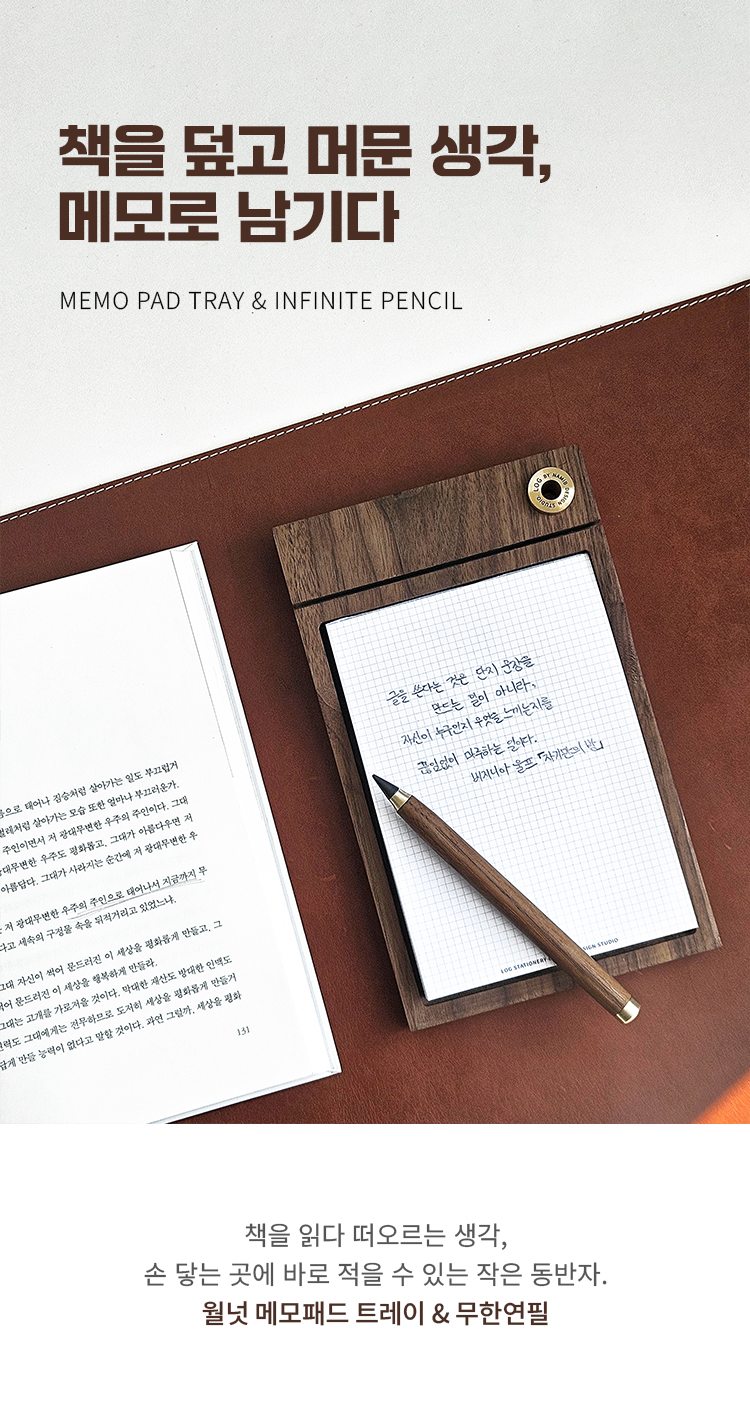 책을 덮고 머문 생각,
메모로 남기다
MEMO PAD TRAY & INFINITE PENCIL
LOG BY NAMIB DESIGN STUDIO
글을 쓴다는 것은 단지 문장을
만드는 일이 아니라,
자신이 누구인지 무엇을 느끼는지를
끊임없이 마주하는 일이다.
버지니아 울프 「자기만의 방」
LOG STATIONERY
SIGN STUDIO
음으로 태어나 짐승처럼 살아가는 일도 부끄럽거
벌레처럼 살아가는 모습 또한 얼마나 부끄러운가.
주인이면서 저 광대무변한 우주의 주인이다. 그대
광대무변한 우주도 평화롭고, 그대가 아름다우면 저
아름답다. 그대가 사라지는 순간에 저 광대무변한 우
저 광대무변한 우주의 주인으로 태어나서 지금까지 무
다고 세속의 구정물 속을 뒤적거리고 있었느냐.
그대 자신이 썩어 문드러진 이 세상을 평화롭게 만들고, 그
썩어 문드러진 이 세상을 행복하게 만들라.
그대는 고개를 가로저을 것이다. 막대한 재산도 방대한 인맥도
권력도 그대에게는 전무하므로 도저히 세상을 평화롭게 만들거
답게 만들 능력이 없다고 말할 것이다. 과연 그럴까. 세상을 평화
131
책을 읽다 떠오르는 생각,
손 닿는 곳에 바로 적을 수 있는 작은 동반자.
월넛 메모패드 트레이 & 무한연필